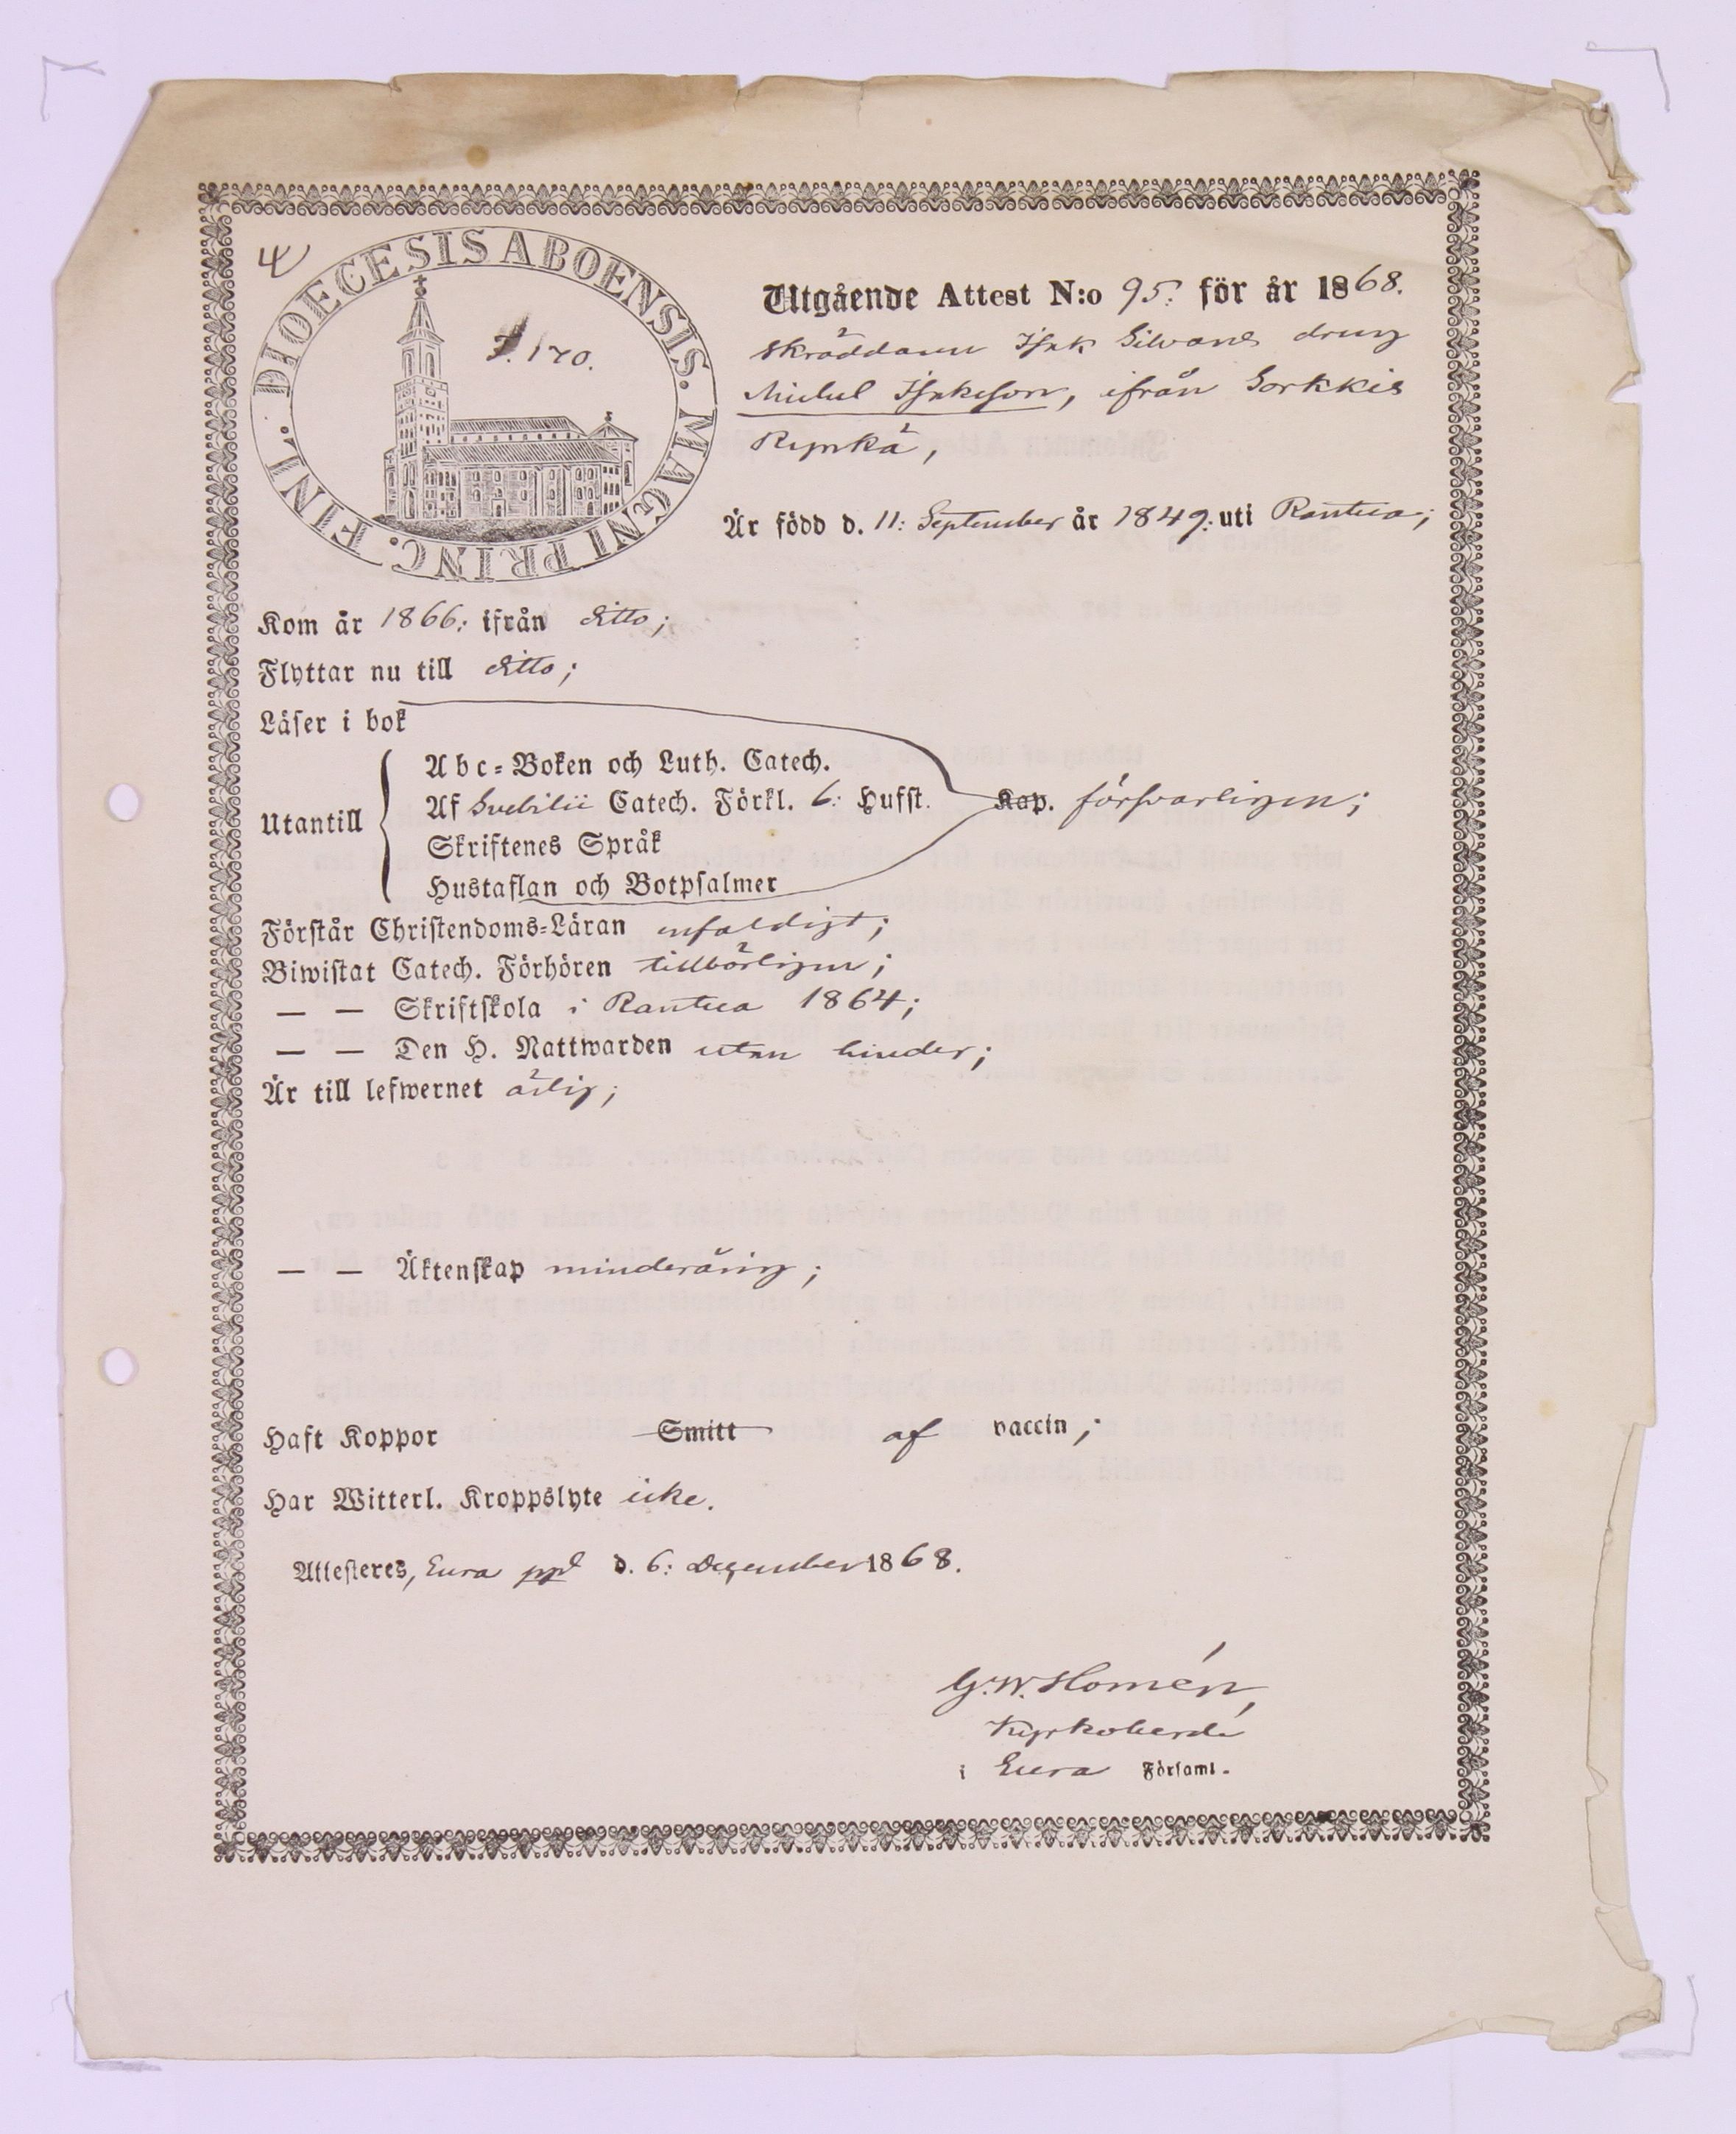 DIOECESIS ABOENSIS. MAGNI PRINC. FINL.
170.
Utgående Attest N:o 95: för år 1868.
Skräddaren Isak Silvans dreng
Michel Isaksson, ifrån Sorkkis
Rynkä,
Är född d. 11: September år 1849: uti Rantua;
Kom år 1866: ifrån ditto;
Flyttar nu till ditto;
Läser i bok
Utantill
Abc-Boken och Luth. Catech.
Af Svebilii Catech. Förkl. 6: Hufst. Kap. försvarligen;
Skriftenes Språk
Hustaflan och Botpsalmer
Förstår Christendoms-Läran enfaldigt;
Biwistat Catech. Förhören tillbörligen;
— — Skriftskola i Rantua 1864;
— — Den H. Nattwarden utan hinder;
Är till lefwernet ärlig;
— — Äktenskap minderårig;
Haft Koppor Smitt af vaccin;
Har Witterl. Kroppslyte icke.
Attesteres, Eura ppl d. 6: December 1868.
G. W. Homén,
Kyrkoherde
i Eura Församl.